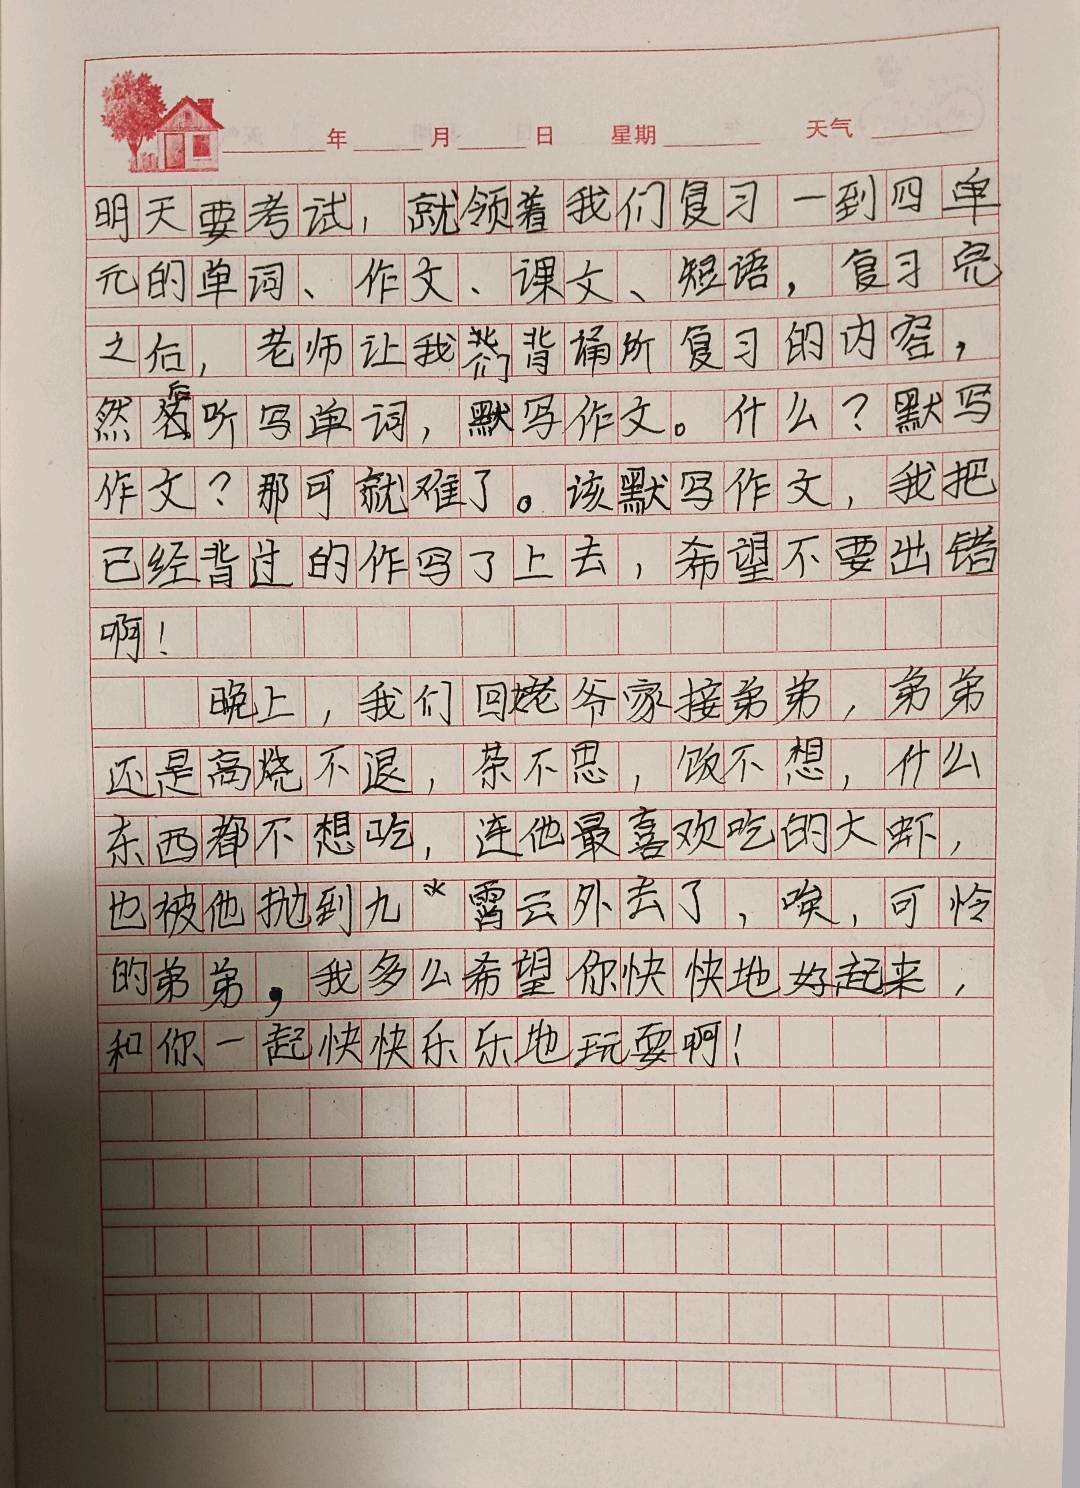 年 月 日 星期 天气
明天要考试，就领着我们复习一到四单
元的单词、作文、课文、短语，复习完
之后，老师让我们背诵所复习的内容，
然后听写单词，默写作文。什么？默写
作文？那可就难了。该默写作文，我把
已经背过的作写了上去，希望不要出错
啊！
晚上，我们回姥爷家接弟弟，弟弟
还是高烧不退，茶不思，饭不想，什么
东西都不想吃，连他最喜欢吃的大虾，
也被他抛到九霄云外去了，唉，可怜
的弟弟，我多么希望你快快地好起来，
和你一起快快乐乐地玩耍啊！